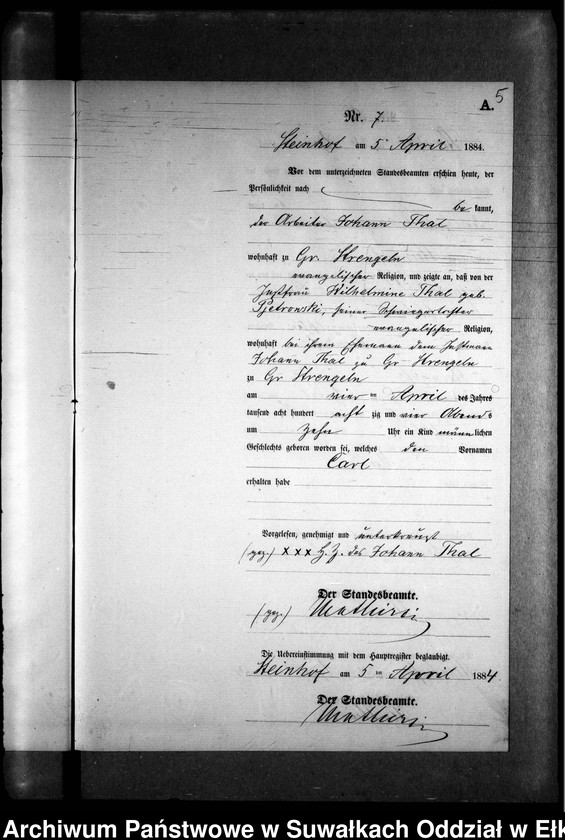 5
A.
Nr. 7.
Steinhof am 5 April 1884.
Vor dem unterzeichneten Standesbeamten erschien heute, der
Persönlichkeit nach
be kannt,
der Arbeiter Johann Thal
wohnhaft zu Gr. Strengeln
evangelischer Religion, und zeigte an, daß von der
Instfrau Wilhelmine Thal geb.
Pjetrowski, seiner Schwiegertochter
evangelischer Religion,
wohnhaft bei ihrem Ehemann dem Instmann
Johann Thal zu Gr Strengeln
zu Gr Strengeln
am vier ten April des Jahres
tausend acht hundert acht zig und vier Abends
um zehn Uhr ein Kind männ lichen
Geschlechts geboren worden sei, welches den Vornamen
Carl
erhalten habe
Vorgelesen, genehmigt und unterkreuzt
(gez.) x x x H. Z. des Johann Thal
Der Standesbeamte.
(gez.)
Die Uebereinstimmung mit dem Hauptregister beglaubigt.
Steinhof am 5 ten April 1884
Der Standesbeamte.
Archiwum Państwowe w Suwałkach Oddział w Ełk